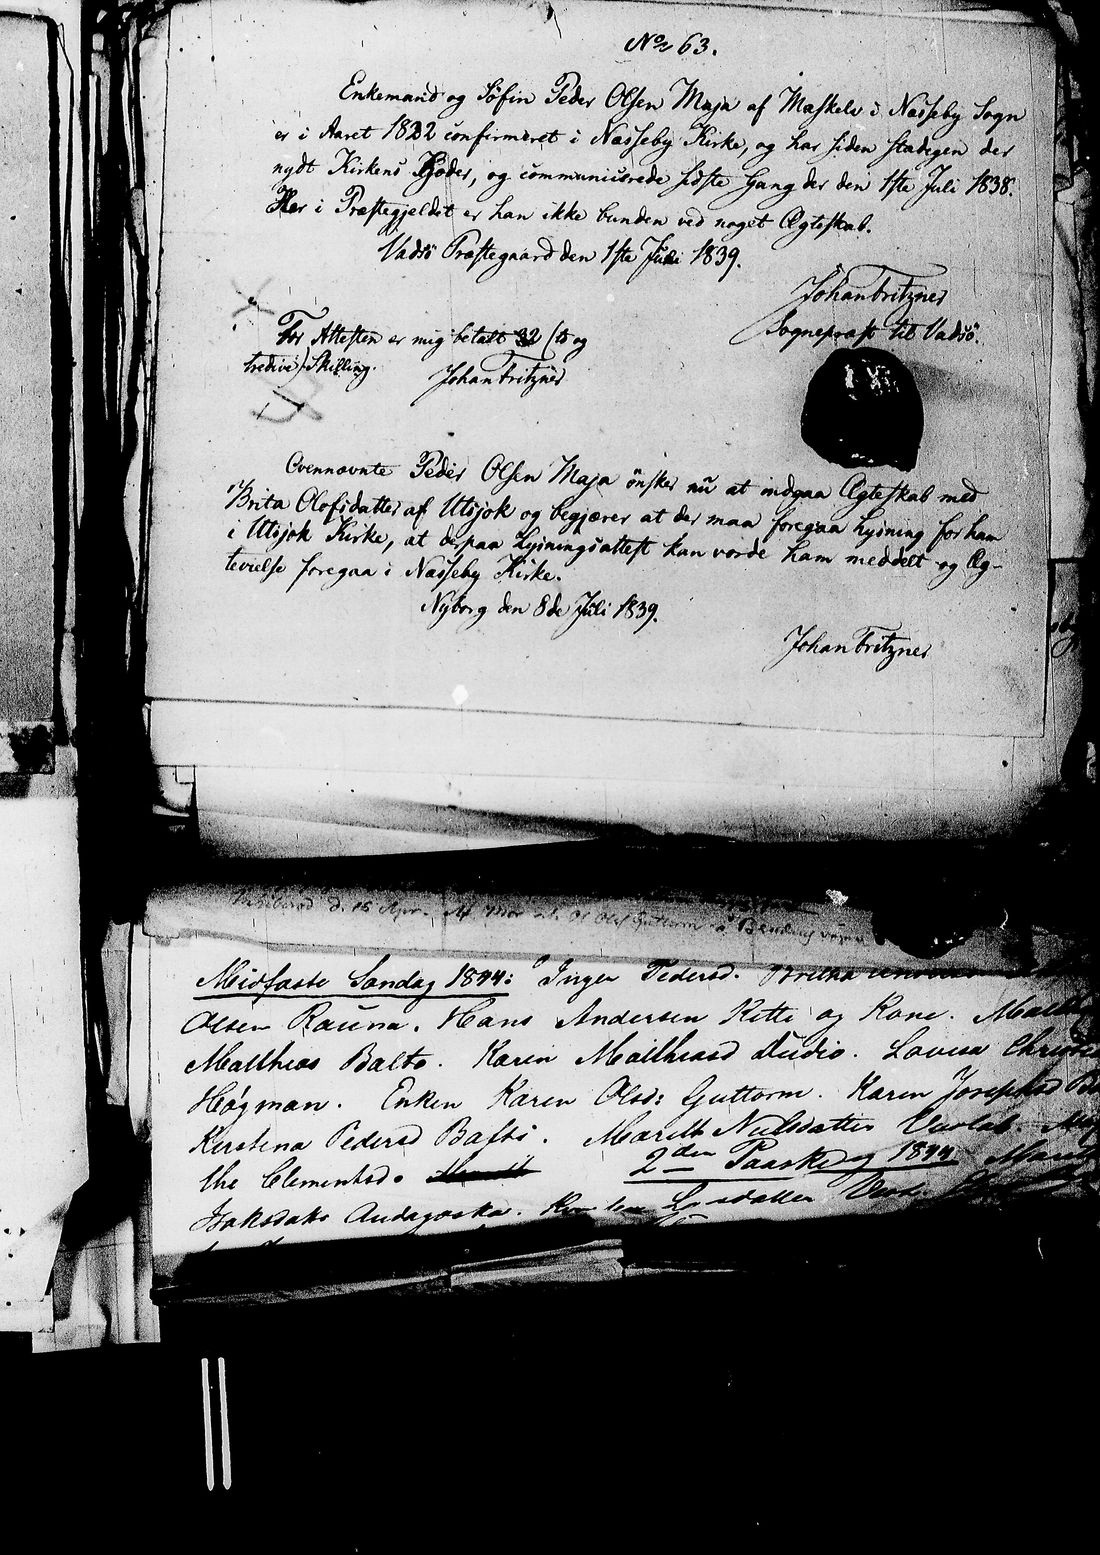 No 63.
Enkemand og Söfin Peder Olsen Maja af Maskele i Næsseby Sogn
er i Aaret 1822 confirmeret i Næsseby Kirke, og har siden stadigen der
nydt Kirkens Goder, og communicerede sidste Gang der den 1ste Juli 1838.
Her i Præstegjeldet er han ikke bunden ved noget Ægteskab.
Vadsö Præstegaard den 1ste Juli 1839.
Johan Fritzner
Sognepræst til Vadsö.
For Attesten er mig betalt 32 (to og
tredive) Skilling.
Johan Fritzner
Ovennævnte Peder Olsen Maja önsker nu at indgaa Ægteskab med
Brita Olofsdatter af Utsjok og begjærer at der maa foregaa Lysning for ham
i Utsjok Kirke, at derpaa Lysningsattest kan vorde ham meddelt og Æg-
tevielse foregaa i Næsseby Kirke.
Nyborg den 8de Juli 1839.
Johan Fritzner
d. 15 Apr. Olof Guttorm
Midfaste Sondag 1844: Inger Pedersd. Britha
Olsen Rauna. Hans Andersen Kitti og Kone.
Matthias Balto. Karin Mathiasd Dudio. Lovisa
Högman. Enken Karen Olsd: Guttorm. Karen Josephsd
Kerstina Pedersd Bafti. Marith Nielsdatter
the Clementsd.
2den Paaskedag 1844
Isaksdatr Andagoska.